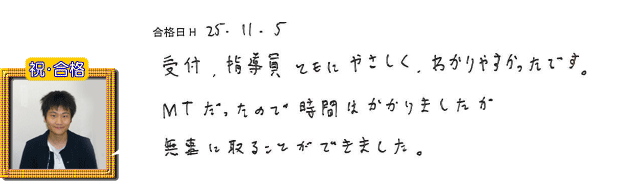 合格日H 25.11.5
祝・合格
受付、指導員ともにやさしく、わかりやすかったです。
MTだったので時間はかかりましたが
無事に取ることができました。